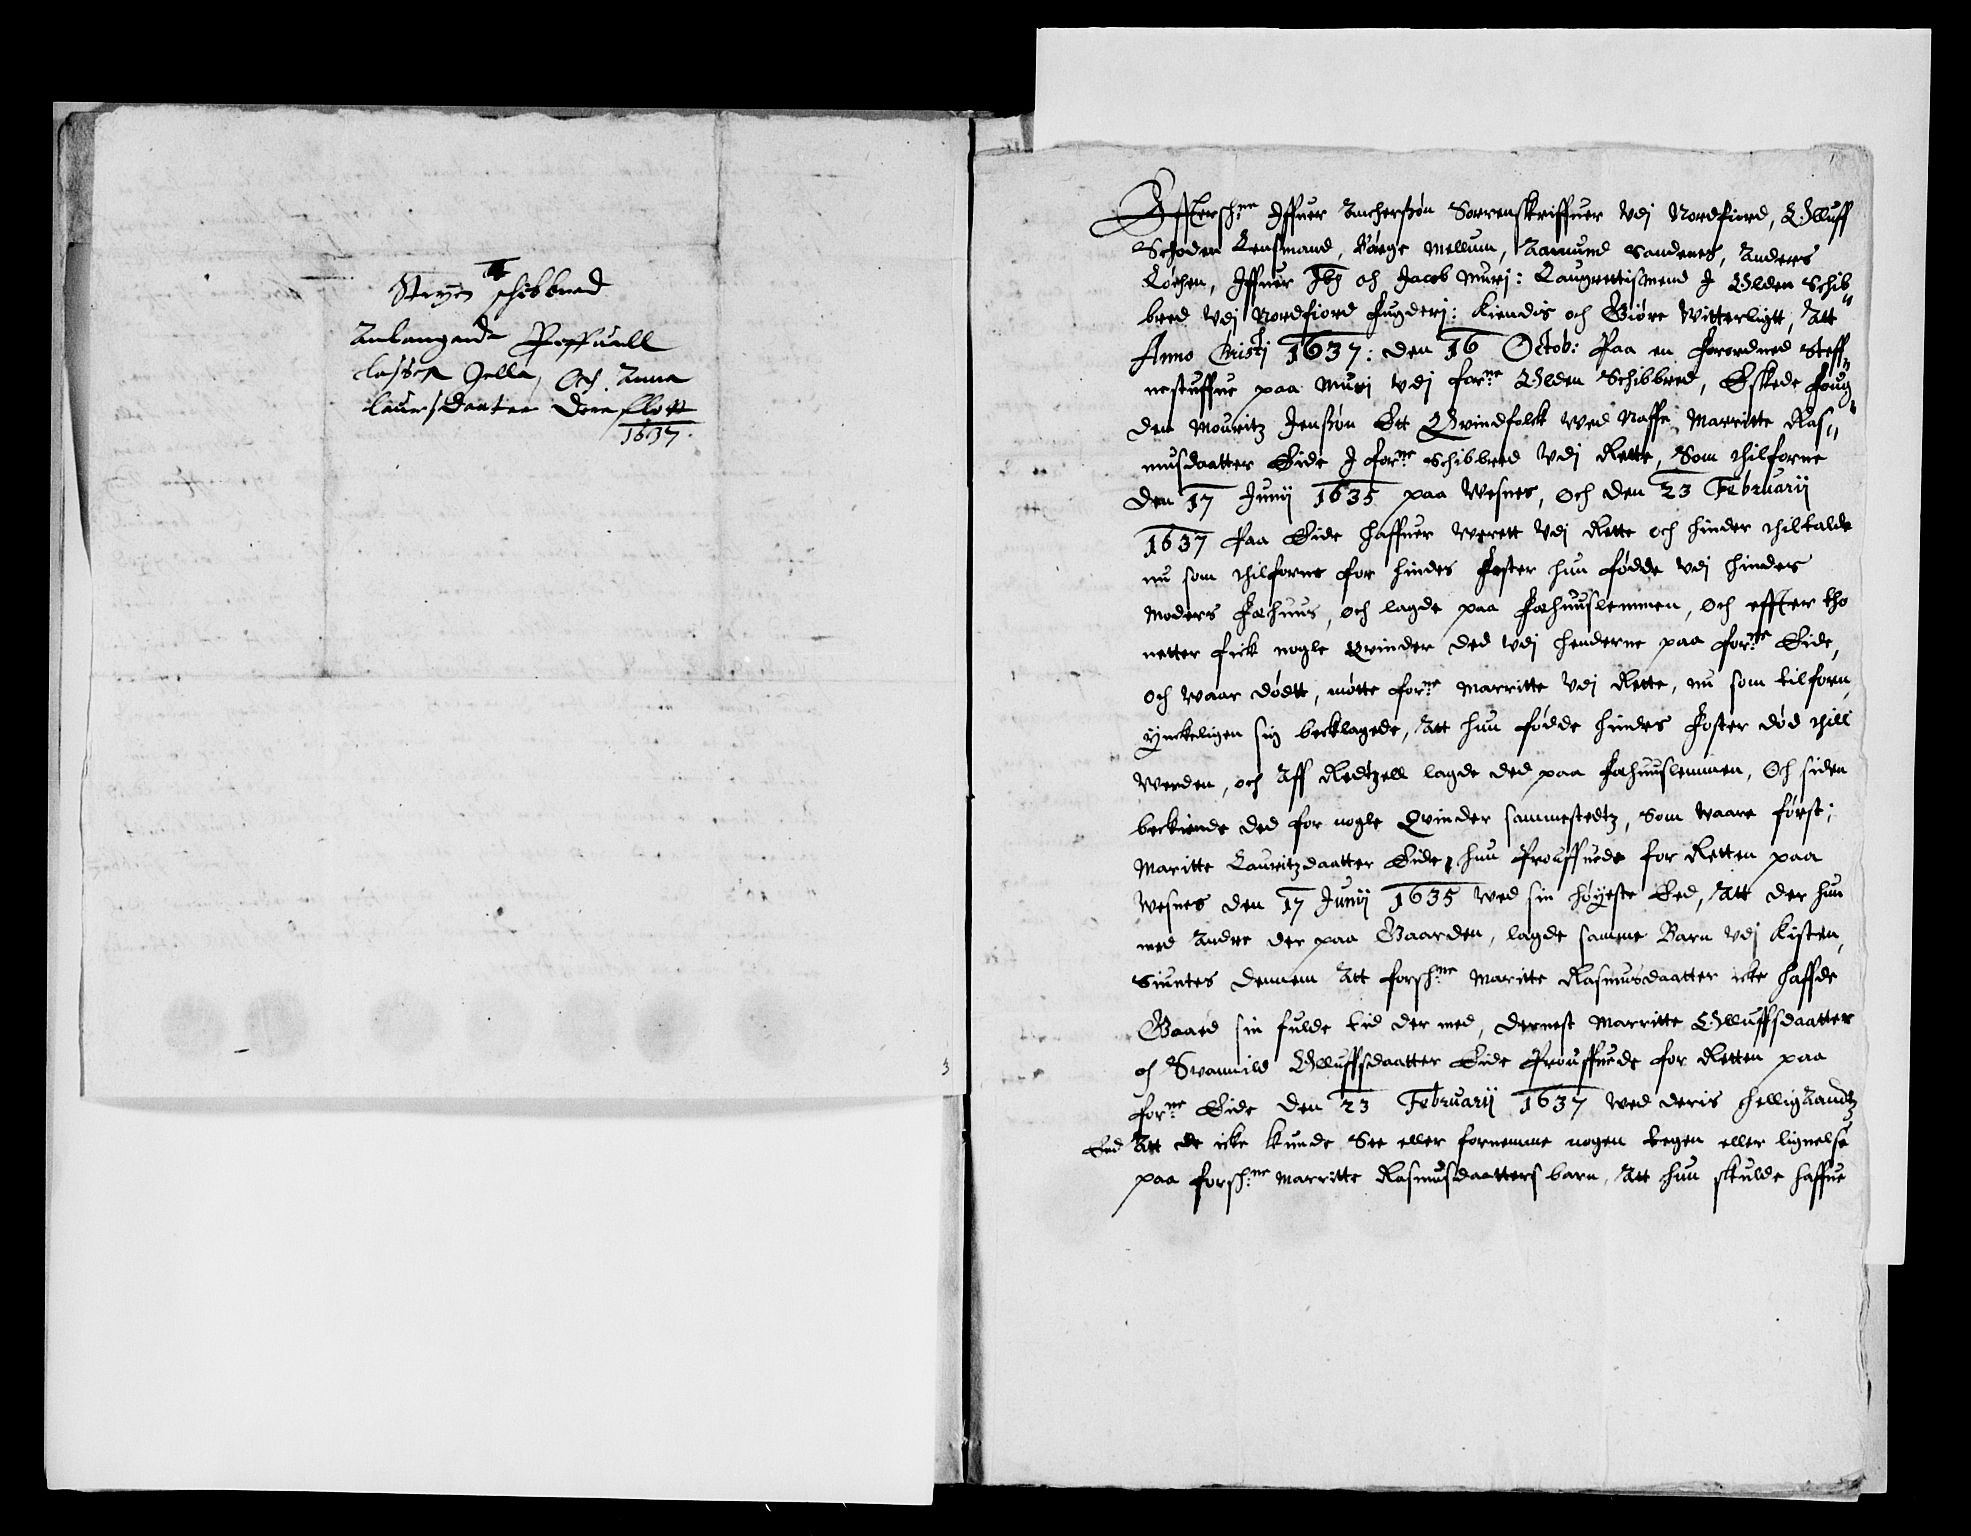 Stryen schibbred
Anlangende Poffuell
lassen Jelle, Och Anna
laursdaatter Deris slott
1637.
3
Efftersch:ne Iffuer Anchersøn Sorrenskriffuer Vdj Nordfiord, Olluff
Schoden Lensmand, Børge Mellum, Aamund Sandenes, Anders
Løchen, Iffuer Iby och Jacob Murj: Laugrettismend J Olden Schib
bred Vdj Nordfiord Fugderj: Kiendis och Giøre Witterligtt, Att
Anno Christj 1637: den 16 Octob: Paa en Forordned Steff
nestuffue paa Murj Vdj for:ne Olden Schibbred, Eskede Foug
den Mouritz Jensøn Ett Qvindfolck wed Naffn Marritte Ras
musdaatter Eide J for:ne Schibbred Vdj Rette, Som thilforne
den 17 Junij 1635 paa Wesnes, Och den 23 Februarij
1637 Paa Eide haffuer werett Vdj Rette och hinder thiltalde
nu som thilforne for hindes Foster hun fødde Vdj hinders
Moders Fæhuus, och lagde paa Fæhuuslemmen, Och effter tho
netter fick nogle Qvinder ded Vdj henderne paa for:ne Eide,
och waar dødtt, møtte for:ne Marritte Vdj Rette, nu som tilforn
ynckeligen sig becklagede, Att hun fødde hindes Foster død thill
Werden, och Aff Redtzell lagde ded paa Fæhuuslemmen, Och siden
beckiende ded for nogle Qvinder sammestedtz, som waare først;
Maritte Lauritzdaatter Eide, hun Prouffuede for Retten paa
Wesnes den 17 Junij 1635 wed sin høyeste Eed, Att der hun
med Andre der paa Gaarden, lagde samme Barn Vdj Kisten,
Siuntes dennem Att forsch:ne Maritte Rasmusdaatter icke haffde
Gaaed sin fulde tid der med, dernest Marritte Olluffsdaatter
och Svannild Olluffsdaatter Eide Prouffuede for Retten paa
for:ne Eide den 23 Februarij 1637 wed deris Hellig Aandtz
Eed Att de icke kunde See eller fornemme nogen tegen eller lignelse
paa forsch:ne Marritte Rasmusdaatters barn, Att hun skulde haffue